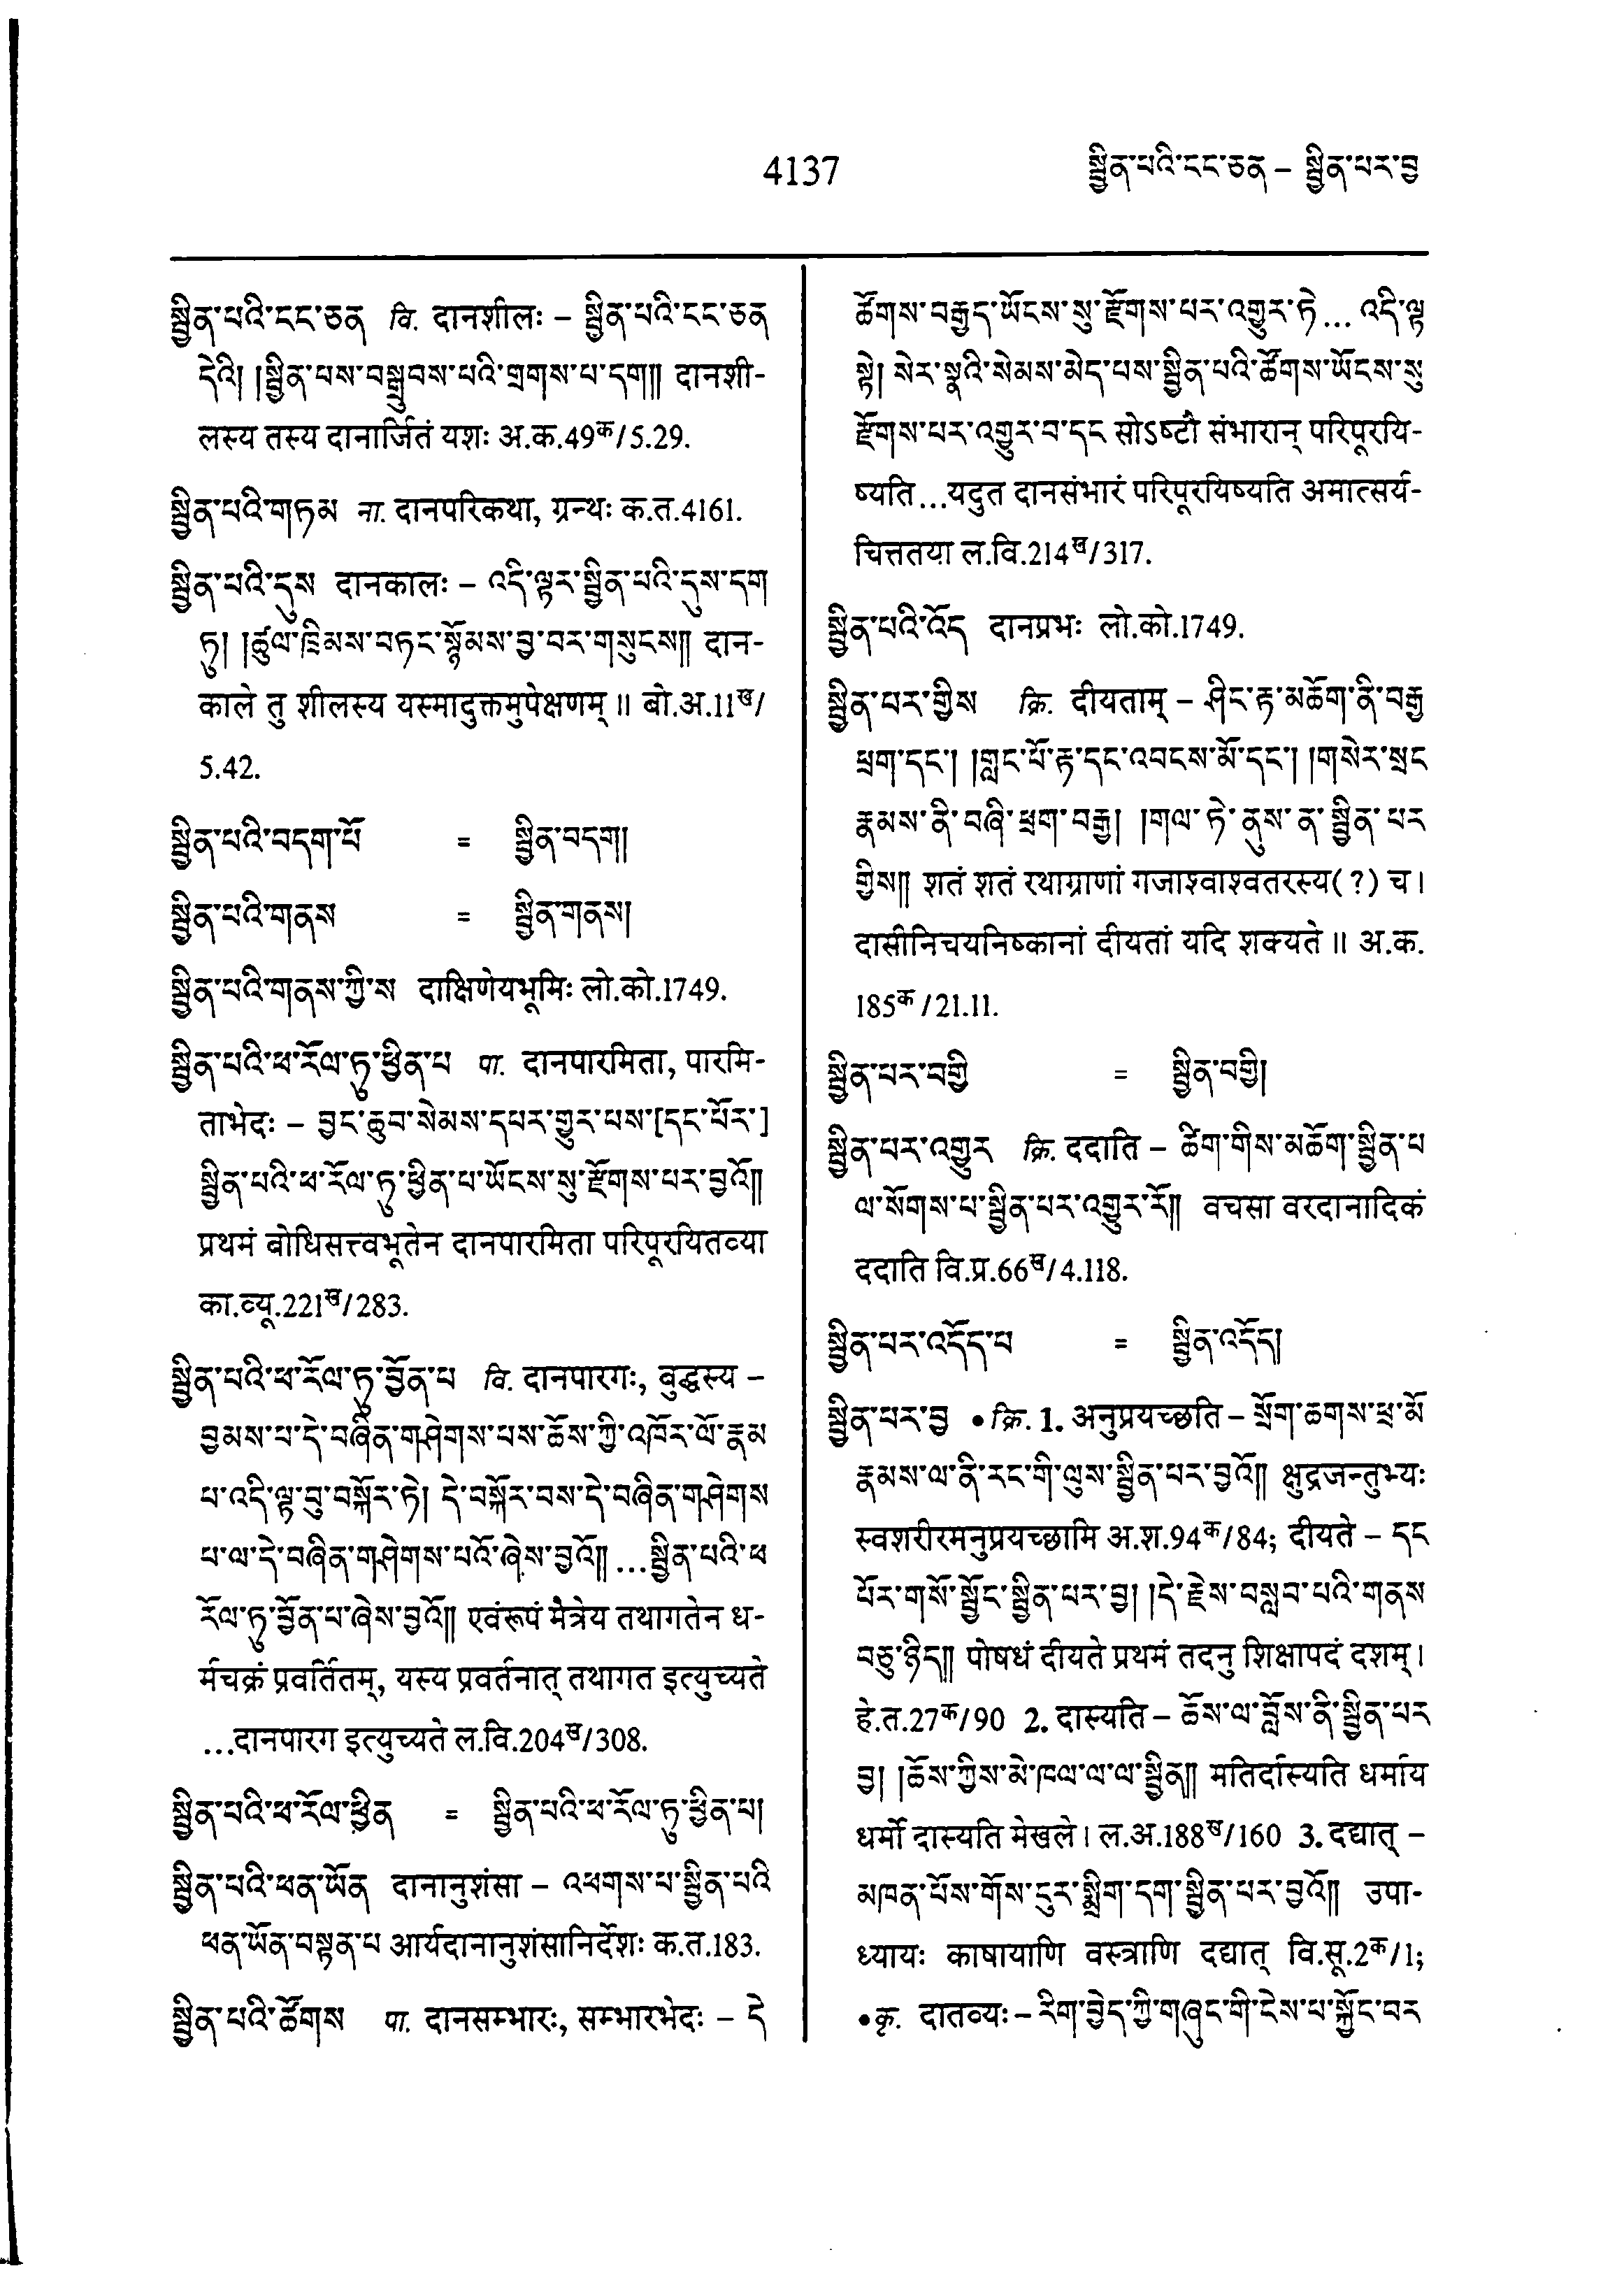 4137
སྦྱིན་པའི་ངང་ཅན – སྦྱིན་པར་བྱ
སྦྱིན་པའི་ངང་ཅན वि. दानशीलः – སྦྱིན་པའི་ངང་ཅན
དེའི། །སྦྱིན་པས་བསྒྲུབས་པའི་གྲགས་པ་དག॥ दानशी-
लस्य तस्य दानार्जितं यशः अ.क.49क/5.29.
སྦྱིན་པའི་གཏམ ना. दानपरिकथा, ग्रन्थः क.त.4161.
སྦྱིན་པའི་དུས दानकालः – འདི་ལྟར་སྦྱིན་པའི་དུས་དག
ཏུ། །ཚུལ་ཁྲིམས་བཏང་སྙོམས་བྱ་བར་གསུངས॥ दान-
काले तु शीलस्य यस्मादुक्तमुपेक्षणम् ॥ बो.अ.11ख/
5.42.
སྦྱིན་པའི་བདག་པོ = སྦྱིན་བདག།
སྦྱིན་པའི་གནས = སྦྱིན་གནས།
སྦྱིན་པའི་གནས་ཀྱི་ས दाक्षिणेयभूमिः लो.को.1749.
སྦྱིན་པའི་ཕ་རོལ་ཏུ་ཕྱིན་པ पा. दानपारमिता, पारमि-
ताभेदः – བྱང་ཆུབ་སེམས་དཔར་གྱུར་པས་[དང་པོར་]
སྦྱིན་པའི་ཕ་རོལ་ཏུ་ཕྱིན་པ་ཡོངས་སུ་རྫོགས་པར་བྱའོ॥
प्रथमं बोधिसत्त्वभूतेन दानपारमिता परिपूरयितव्या
का.व्यू.221ख/283.
སྦྱིན་པའི་ཕ་རོལ་ཏུ་བྱོན་པ वि. दानपारगः, बुद्धस्य –
བྱམས་པ་དེ་བཞིན་གཤེགས་པས་ཆོས་ཀྱི་འཁོར་ལོ་རྣམ
པ་འདི་ལྟ་བུ་བསྐོར་ཏེ། དེ་བསྐོར་བས་དེ་བཞིན་གཤེགས
པ་ལ་དེ་བཞིན་གཤེགས་པའོ་ཞེས་བྱའོ॥ ...སྦྱིན་པའི་ཕ
རོལ་ཏུ་བྱོན་པ་ཞེས་བྱའོ॥ एवंरूपं मैत्रेय तथागतेन ध-
र्मचक्रं प्रवर्तितम्, यस्य प्रवर्तनात् तथागत इत्युच्यते
...दानपारग इत्युच्यते ल.वि.204ख/308.
སྦྱིན་པའི་ཕ་རོལ་ཕྱིན = སྦྱིན་པའི་ཕ་རོལ་ཏུ་ཕྱིན་པ།
སྦྱིན་པའི་ཕན་ཡོན दानानुशंसा – འཕགས་པ་སྦྱིན་པའི
ཕན་ཡོན་བསྟན་པ आर्यदानानुशंसानिर्देशः क.त.183.
སྦྱིན་པའི་ཚོགས पा. दानसम्भारः, सम्भारभेदः – དེ
ཚོགས་བརྒྱད་ཡོངས་སུ་རྫོགས་པར་འགྱུར་ཏེ... འདི་ལྟ
སྟེ། སེར་སྣའི་སེམས་མེད་པས་སྦྱིན་པའི་ཚོགས་ཡོངས་སུ
རྫོགས་པར་འགྱུར་བ་དང सोऽष्टौ संभारान् परिपूरयि-
ष्यति ...यदुत दानसंभारं परिपूरयिष्यति अमात्सर्य-
चित्ततया ल.वि.214ख/317.
སྦྱིན་པའི་འོད दानप्रभः लो.को.1749.
སྦྱིན་པར་གྱིས क्रि. दीयताम् – ཤིང་རྟ་མཆོག་ནི་བརྒྱ
ཕྲག་དང་། །གླང་པོ་རྟ་དང་འབངས་མོ་དང་། །གསེར་སྲང
རྣམས་ནི་བཞི་ཕྲག་བརྒྱ། །གལ་ཏེ་ནུས་ན་སྦྱིན་པར
གྱིས॥ शतं शतं रथाग्राणां गजाश्वाश्वतरस्य(?) च ।
दासीनिचयनिष्कानां दीयतां यदि शक्यते ॥ अ.क.
185क/21.11.
སྦྱིན་པར་བགྱི = སྦྱིན་བགྱི།
སྦྱིན་པར་འགྱུར क्रि. ददाति – ཚིག་གིས་མཆོག་སྦྱིན་པ
ལ་སོགས་པ་སྦྱིན་པར་འགྱུར་རོ॥ वचसा वरदानादिकं
ददाति वि.प्र.66ख/4.118.
སྦྱིན་པར་འདོད་པ = སྦྱིན་འདོད།
སྦྱིན་པར་བྱ • क्रि. 1. अनुप्रयच्छति – སྲོག་ཆགས་ཕྲ་མོ
རྣམས་ལ་ནི་རང་གི་ལུས་སྦྱིན་པར་བྱའོ॥ क्षुद्रजन्तुभ्यः
स्वशरीरमनुप्रयच्छामि अ.श.94क/84; दीयते – དང
པོར་གསོ་སྦྱོང་སྦྱིན་པར་བྱ། །དེ་རྗེས་བསླབ་པའི་གནས
བཅུ་ཉིད॥ पोषधं दीयते प्रथमं तदनु शिक्षापदं दशम् ।
हे.त.27क/90 2. दास्यति – ཆོས་ལ་བློས་ནི་སྦྱིན་པར
བྱ། །ཆོས་ཀྱིས་མེ་ཁལ་ལ་ལ་སྦྱིན॥ मतिर्दास्यति धर्माय
धर्मो दास्यति मेखले । ल.अ.188ख/160 3. दद्यात् –
མཁན་པོས་གོས་ངུར་སྨྲིག་དག་སྦྱིན་པར་བྱའོ॥ उपा-
ध्यायः काषायाणि वस्त्राणि दद्यात् वि.सू.2क/1;
• कृ. दातव्यः – རིག་བྱེད་ཀྱི་གཞུང་གི་ངེས་པ་སྐྱོང་བར